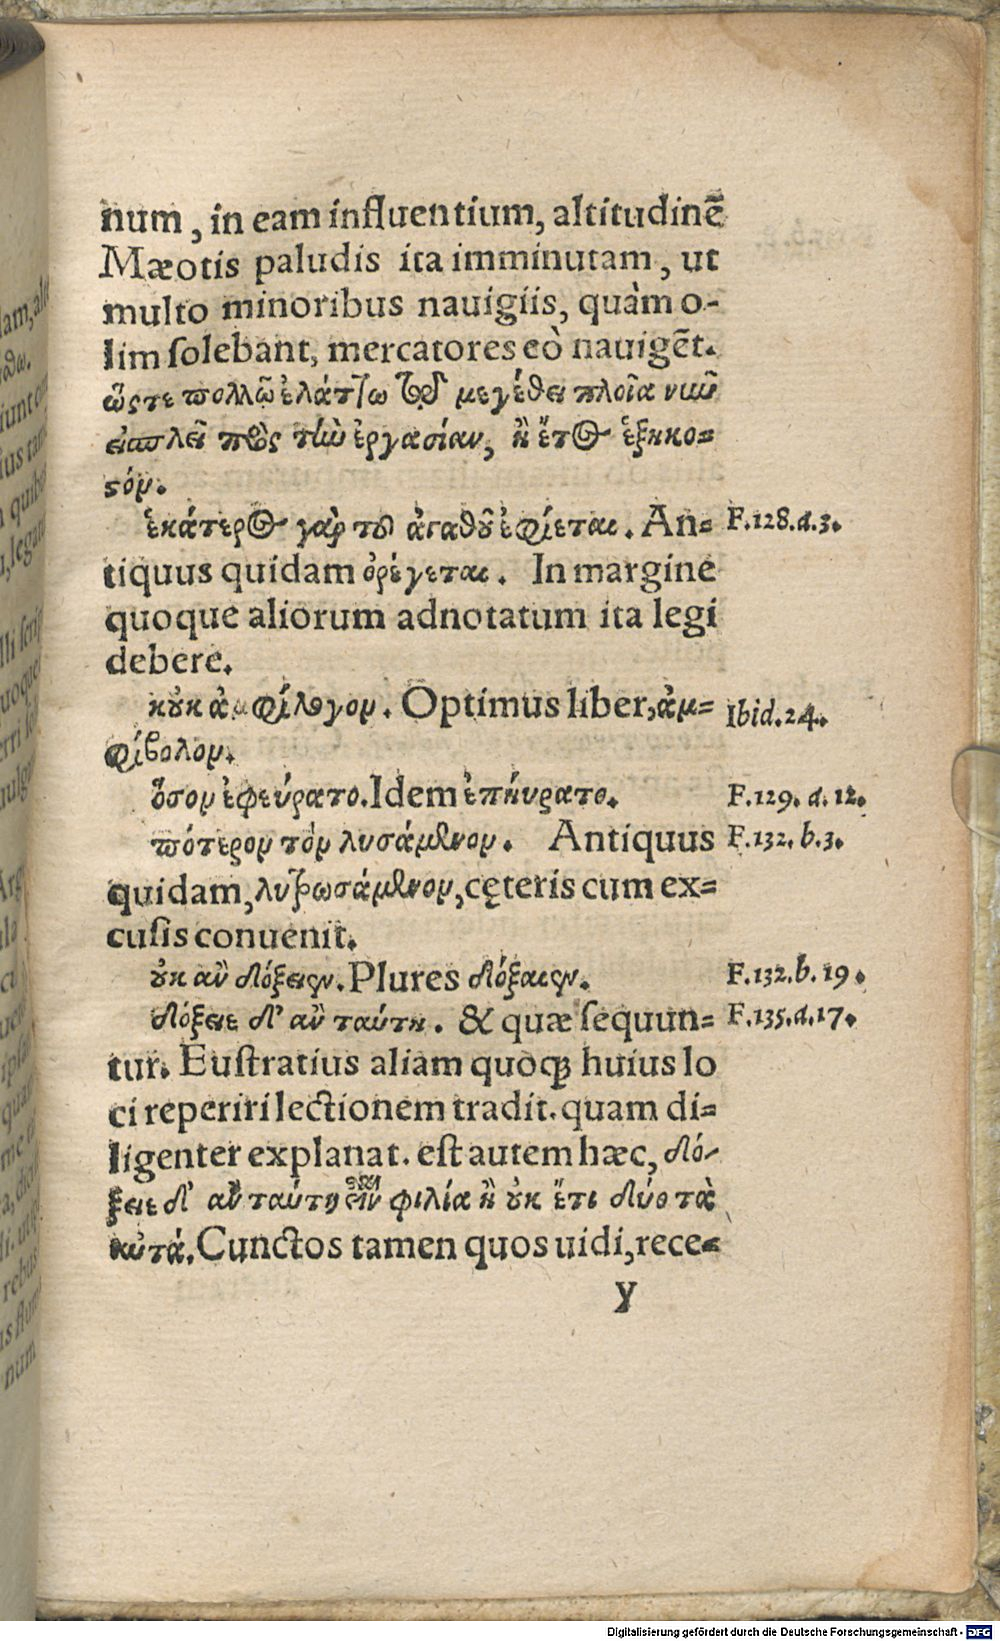 num, in eam influentium, altitudinē
Mæotis paludis ita imminutam, ut
multo minoribus nauigiis, quàm o-
lim solebant, mercatores eò nauigēt.
ὥςτε πολλῷ ἐλάττω τῷ μεγέθει πλοῖα νιῦ
εἰσπλεῖ πρὸς τὴν ἐργασίαν, ἢ ἔτος ἑξηκο-
ϛόν.
ἑκάτερος γὰρ τοῦ ἀγαθοῦ ἐφίεται. An- F.128.a.3.
tiquus quidam ὀρέγεται. In margine
quoque aliorum adnotatum ita legi
debere.
κοὐκ ἀμφίλογον. Optimus liber, ἀμ- Ibid.24.
φίβολον.
ὅσον ἐφεύρατο. Idem ἐπηύρατο. F.129.a.12.
πότερον τὸν λυσάμενον. Antiquus F.132.b.3.
quidam, λυτρωσάμενον, cęteris cum ex-
cusis conuenit.
οὐκ ἂν δόξειεν. Plures δόξαιεν. F.132.b.19.
δόξειε δ' ἂν ταύτη. & quæ sequun- F.135.a.17.
tur. Eustratius aliam quoqꝫ huius lo
ci reperiri lectionem tradit. quam di-
ligenter explanat. est autem hæc, δό-
ξειε δ' ἂν ταύτῃ φιλία ἢ οὐκ ἔτι δύο τὰ
αὐτά. Cunctos tamen quos uidi, rece-
y
Digitalisierung gefördert durch die Deutsche Forschungsgemeinschaft - DFG